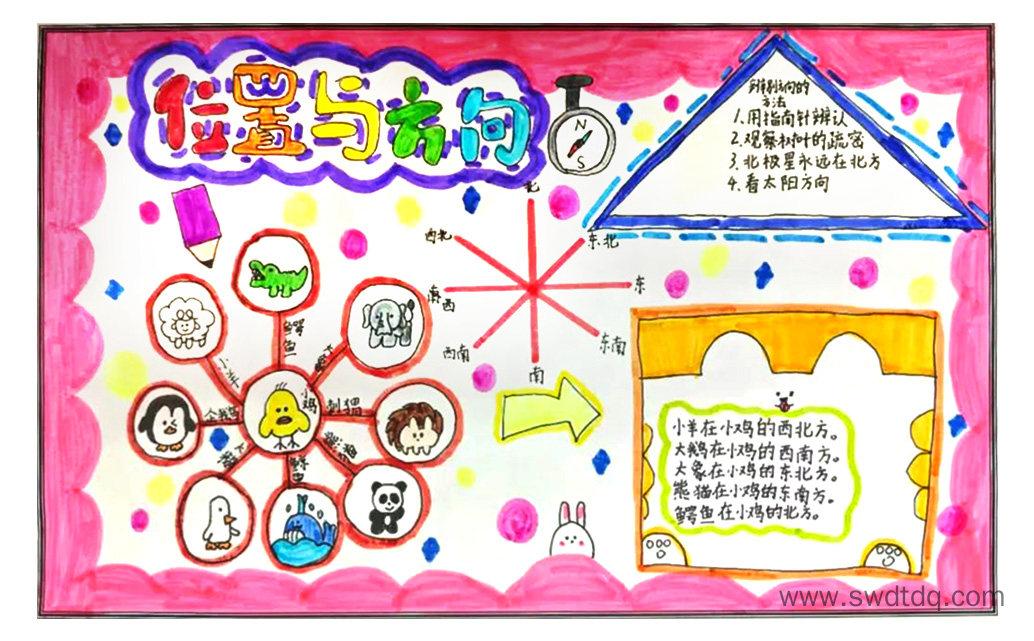 位置与方向
N
S
辨别方向的
方法
1.用指南针辨认
2.观察树叶的疏密
3.北极星永远在北方
4.看太阳方向
北
西北
东北
西
东
西南
东南
南
鳄鱼
小羊
大象
小鸡
企鹅
刺猬
大鹅
熊猫
小羊在小鸡的西北方。
大鹅在小鸡的西南方。
大象在小鸡的东北方。
熊猫在小鸡的东南方。
鳄鱼在小鸡的北方。
www.swdtdq.com